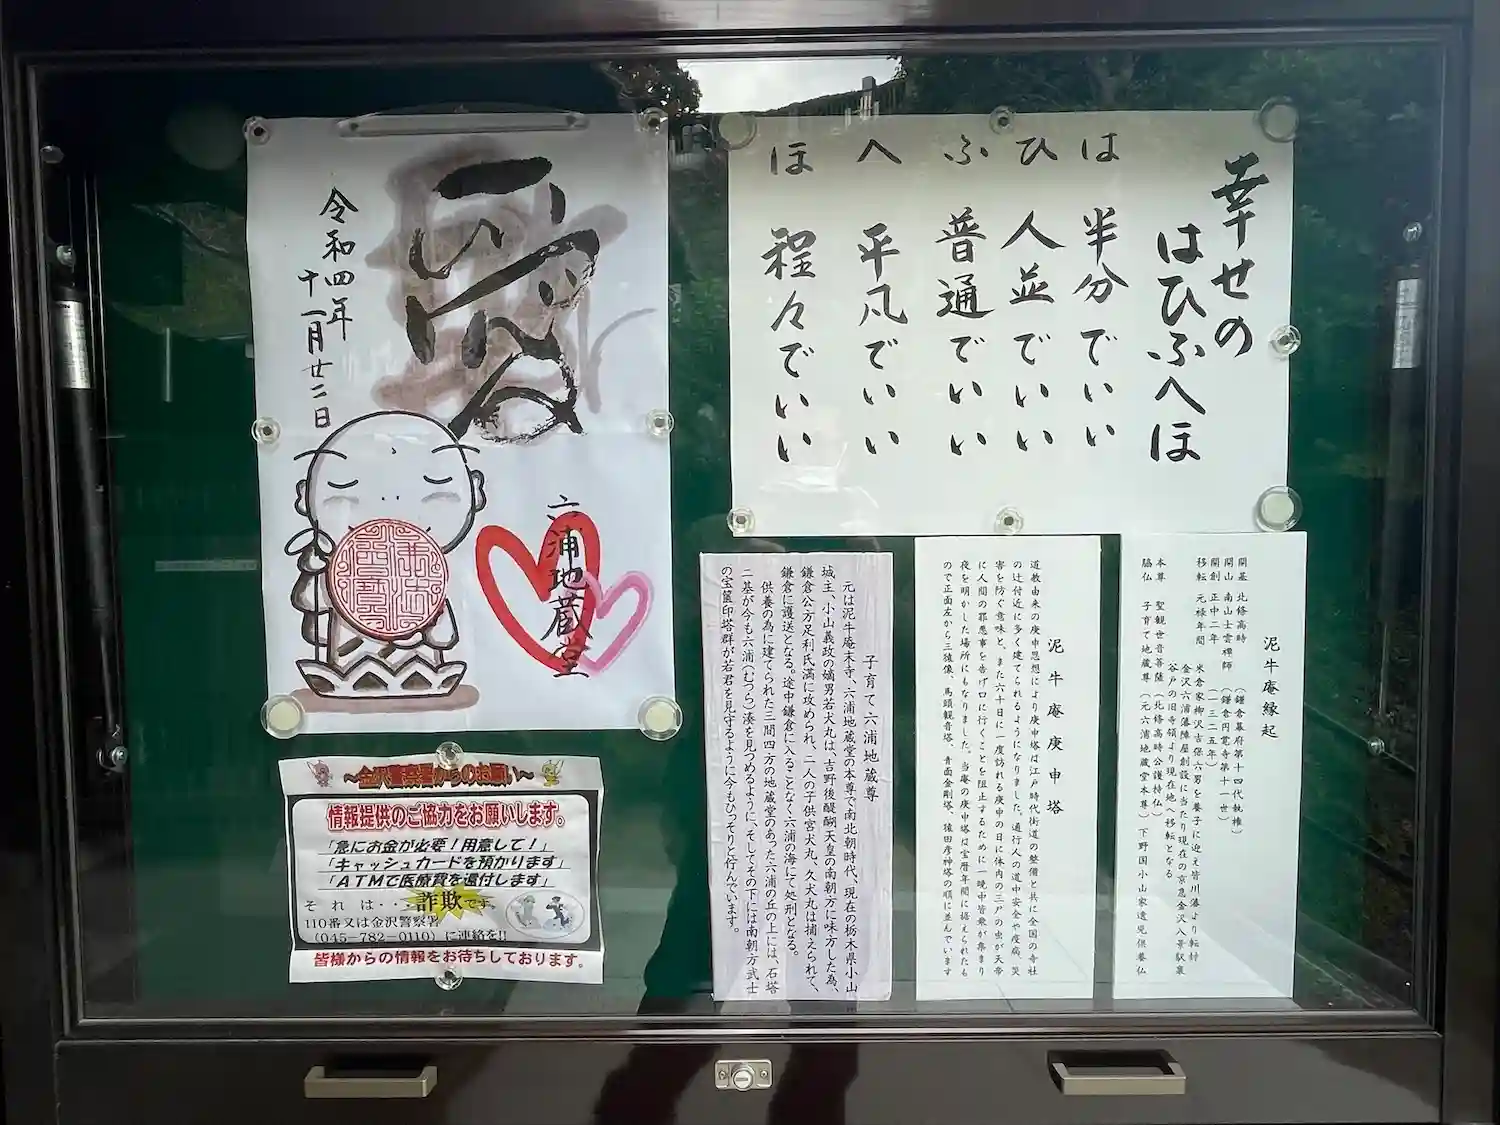 幸せの
はひふへほ
は 半分でいい
ひ 人並でいい
ふ 普通でいい
へ 平凡でいい
ほ 程々でいい
令和四年
十一月廿二日
六浦地蔵堂
泥牛庵縁起
開基 北條高時 (鎌倉幕府第十四代執権)
開山 南山士雲禅師 (鎌倉円覚寺第十一世)
開創 正中二年 (一三二五年)
移転 元禄年間 米倉家柳沢吉保六男を養子に迎え皆川藩より転封
金沢六浦藩陣屋創設に当たり現在の京急金沢八景駅裏
谷戸の旧寺領より現在地へ移転となる
本尊 聖観世音菩薩 (北條高時公護持仏)
脇仏 子育て地蔵尊 (元六浦地蔵堂本尊) 下野国小山家遺児供養仏
泥牛庵庚申塔
道教由来の庚申思想により庚申塔は江戸時代街道の整備と共に全国の寺社
の辻付近に多く建てられるようになりました。通行人の道中安全や疫病、災
害を防ぐ意味と、また六十日に一度訪れる庚申の日に体内の三尸の虫が天帝
に人間の罪悪事を告げ口に行くことを阻止するために一晩中皆衆が集まり
夜を明かした場所にもなりました。当庵の庚申塔は宝暦年間に据えられたも
ので正面左から三猿像、馬頭観音塔、青面金剛塔、猿田彦神塔の順に並んでいます
子育て六浦地蔵尊
元は泥牛庵末寺、六浦地蔵堂の本尊で南北朝時代、現在の栃木県小山
城主、小山義政の嫡男若犬丸は、吉野後醍醐天皇の南朝方に味方した為、
鎌倉公方足利氏満に攻められ、二人の子供宮犬丸、久犬丸は捕えられて、
鎌倉に護送となる。途中鎌倉に入ることなく六浦の海にて処刑となる。
供養の為に建てられた三間四方の地蔵堂のあった六浦の丘の上には、石塔
二基が今も六浦(むつら)湊を見つめるように、そしてその下には南朝方武士
の宝篋印塔群が若君を見守るように今もひっそりと佇んでいます。
〜金沢警察署からのお願い〜
情報提供のご協力をお願いします。
「急にお金が必要!用意して!」
「キャッシュカードを預かります」
「ATMで医療費を還付します」
それは・・詐欺です。
110番又は金沢警察署
(045-782-0110)に連絡を!!
皆様からの情報をお待ちしております。